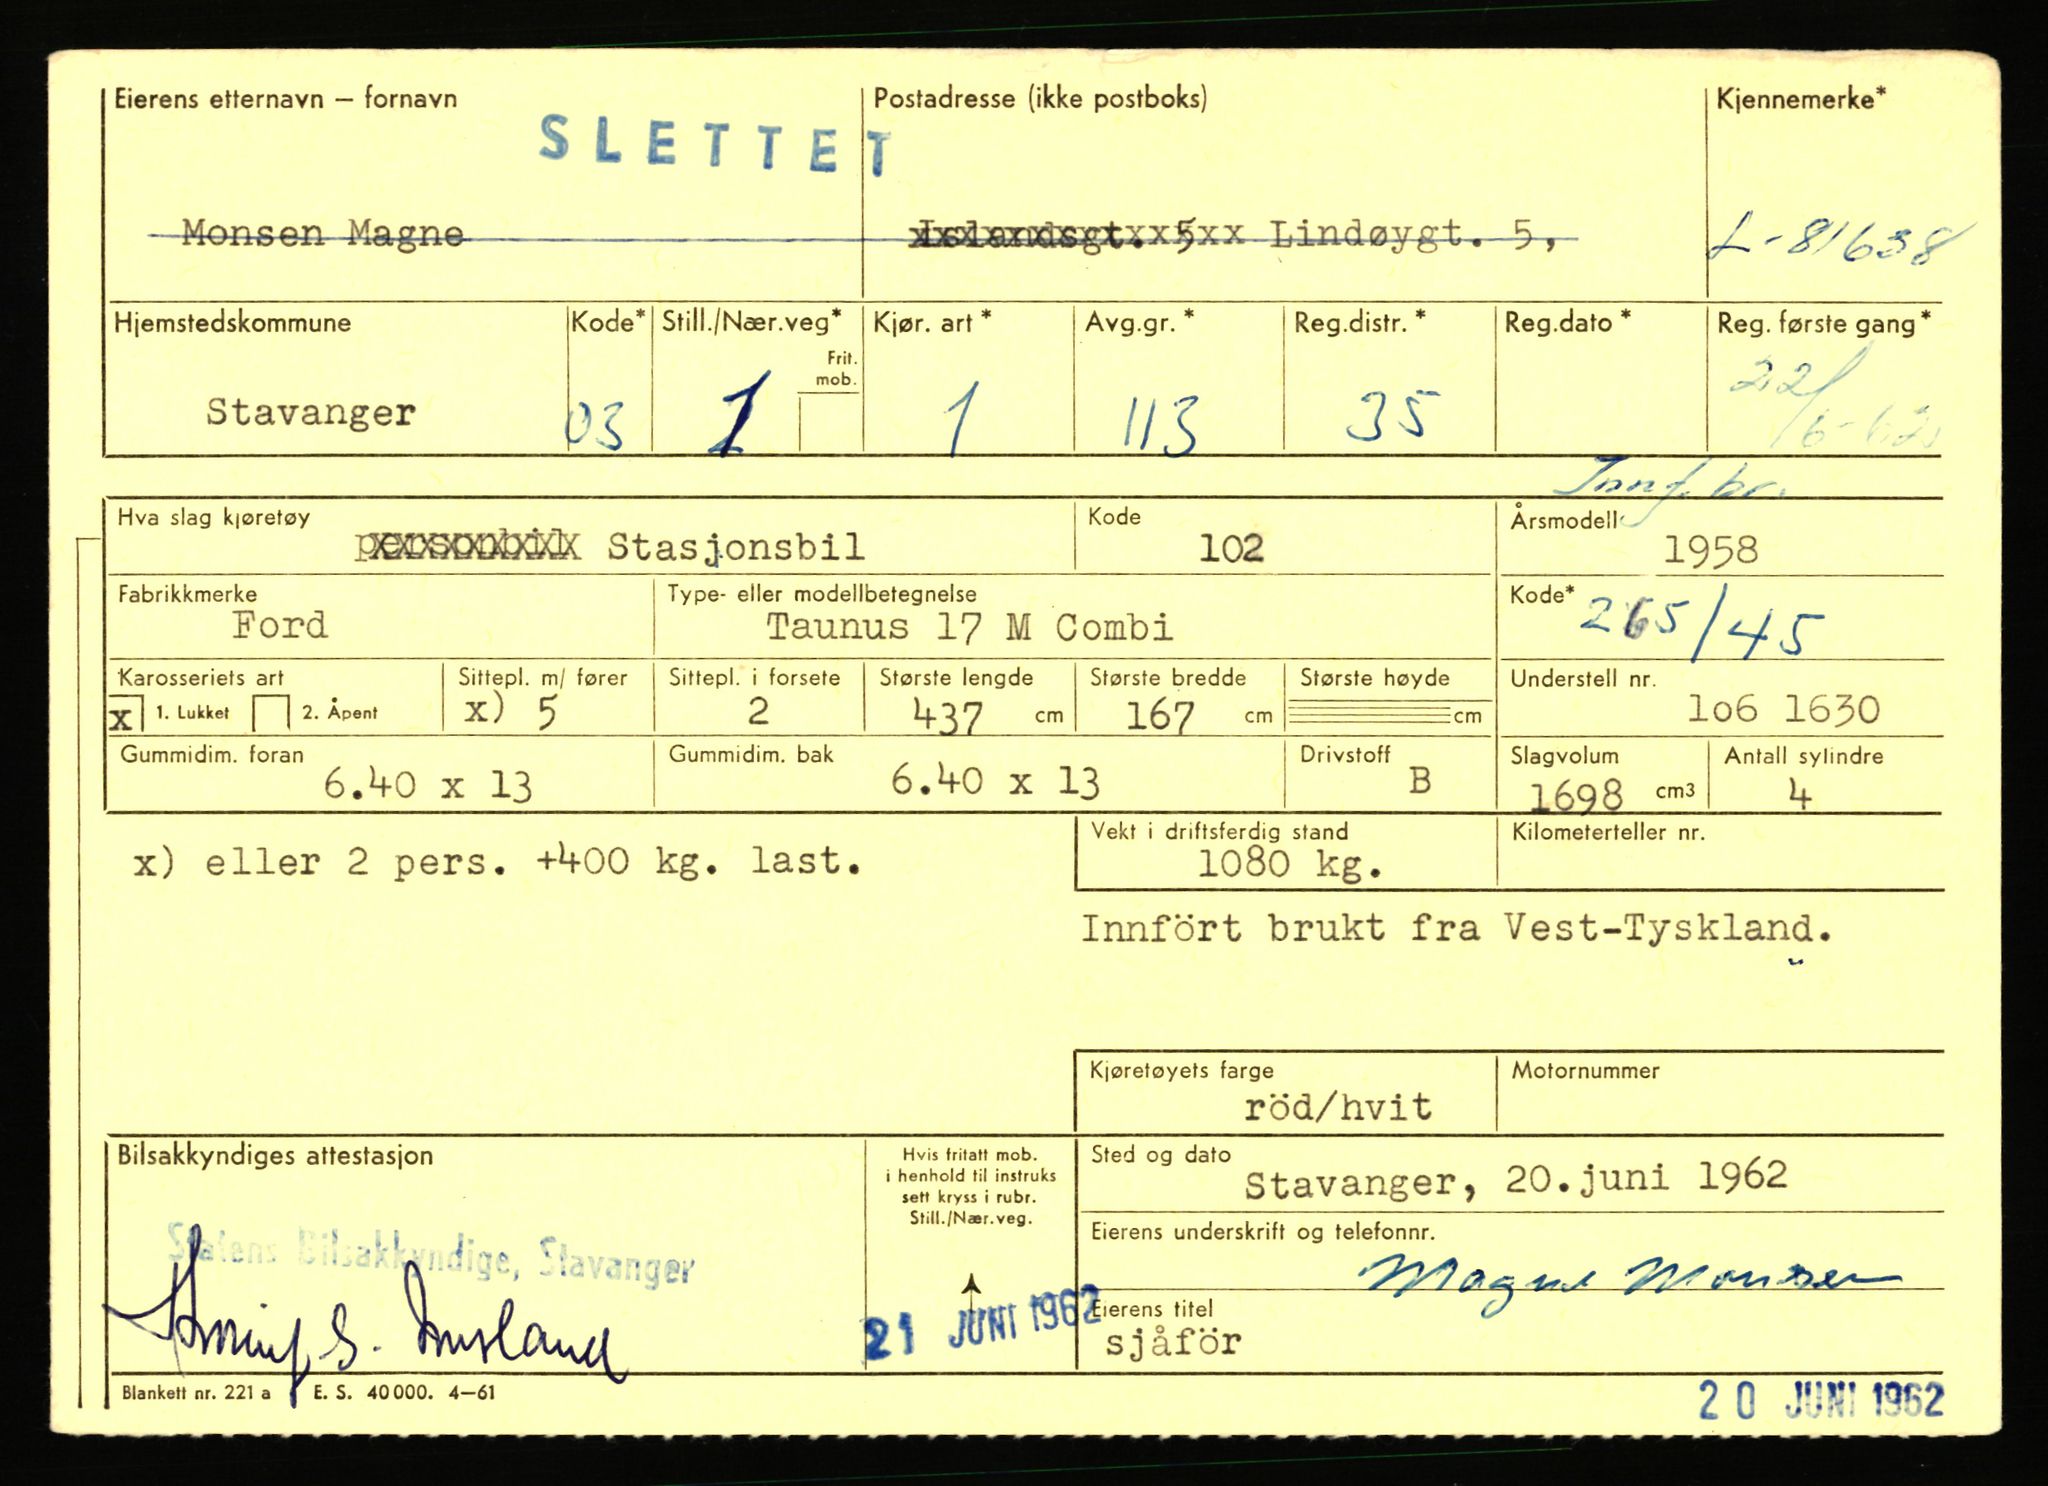 Eierens etternavn – fornavn Postadresse (ikke postboks) Kjennemerke*
SLETTET
Monsen Magne Islandsgt. 5 Lindøygt. 5, L-81638
Hjemstedskommune Kode* Still./Nær.veg* Kjør. art* Avg.gr.* Reg.distr.* Reg.dato* Reg. første gang*
Frit. mob.
Stavanger 03 1 1 113 35 22/6-62
Innf. br.
Hva slag kjøretøy Kode Årsmodell
personbil Stasjonsbil 102 1958
Fabrikkmerke Type- eller modellbetegnelse Kode*
Ford Taunus 17 M Combi 265/45
Karosseriets art Sittepl. m/ fører Sittepl. i forsete Største lengde Største bredde Største høyde Understell nr.
x 1. Lukket 2. Åpent x) 5 2 437 cm 167 cm cm 1o6 1630
Gummidim. foran Gummidim. bak Drivstoff Slagvolum Antall sylindre
6.40 x 13 6.40 x 13 B 1698 cm3 4
Vekt i driftsferdig stand Kilometerteller nr.
x) eller 2 pers. +400 kg. last. 1080 kg.
Innfört brukt fra Vest-Tyskland.
Kjøretøyets farge Motornummer
röd/hvit
Bilsakkyndiges attestasjon Hvis fritatt mob. i henhold til instruks sett kryss i rubr. Still./Nær.veg. Sted og dato
Stavanger, 20.juni 1962
Eierens underskrift og telefonnr.
Statens Bilsakkyndige, Stavanger
Magne Monsen
21 JUNI 1962 Eierens titel
sjåför
Blankett nr. 221 a E. S. 40 000. 4–61
20 JUNI 1962